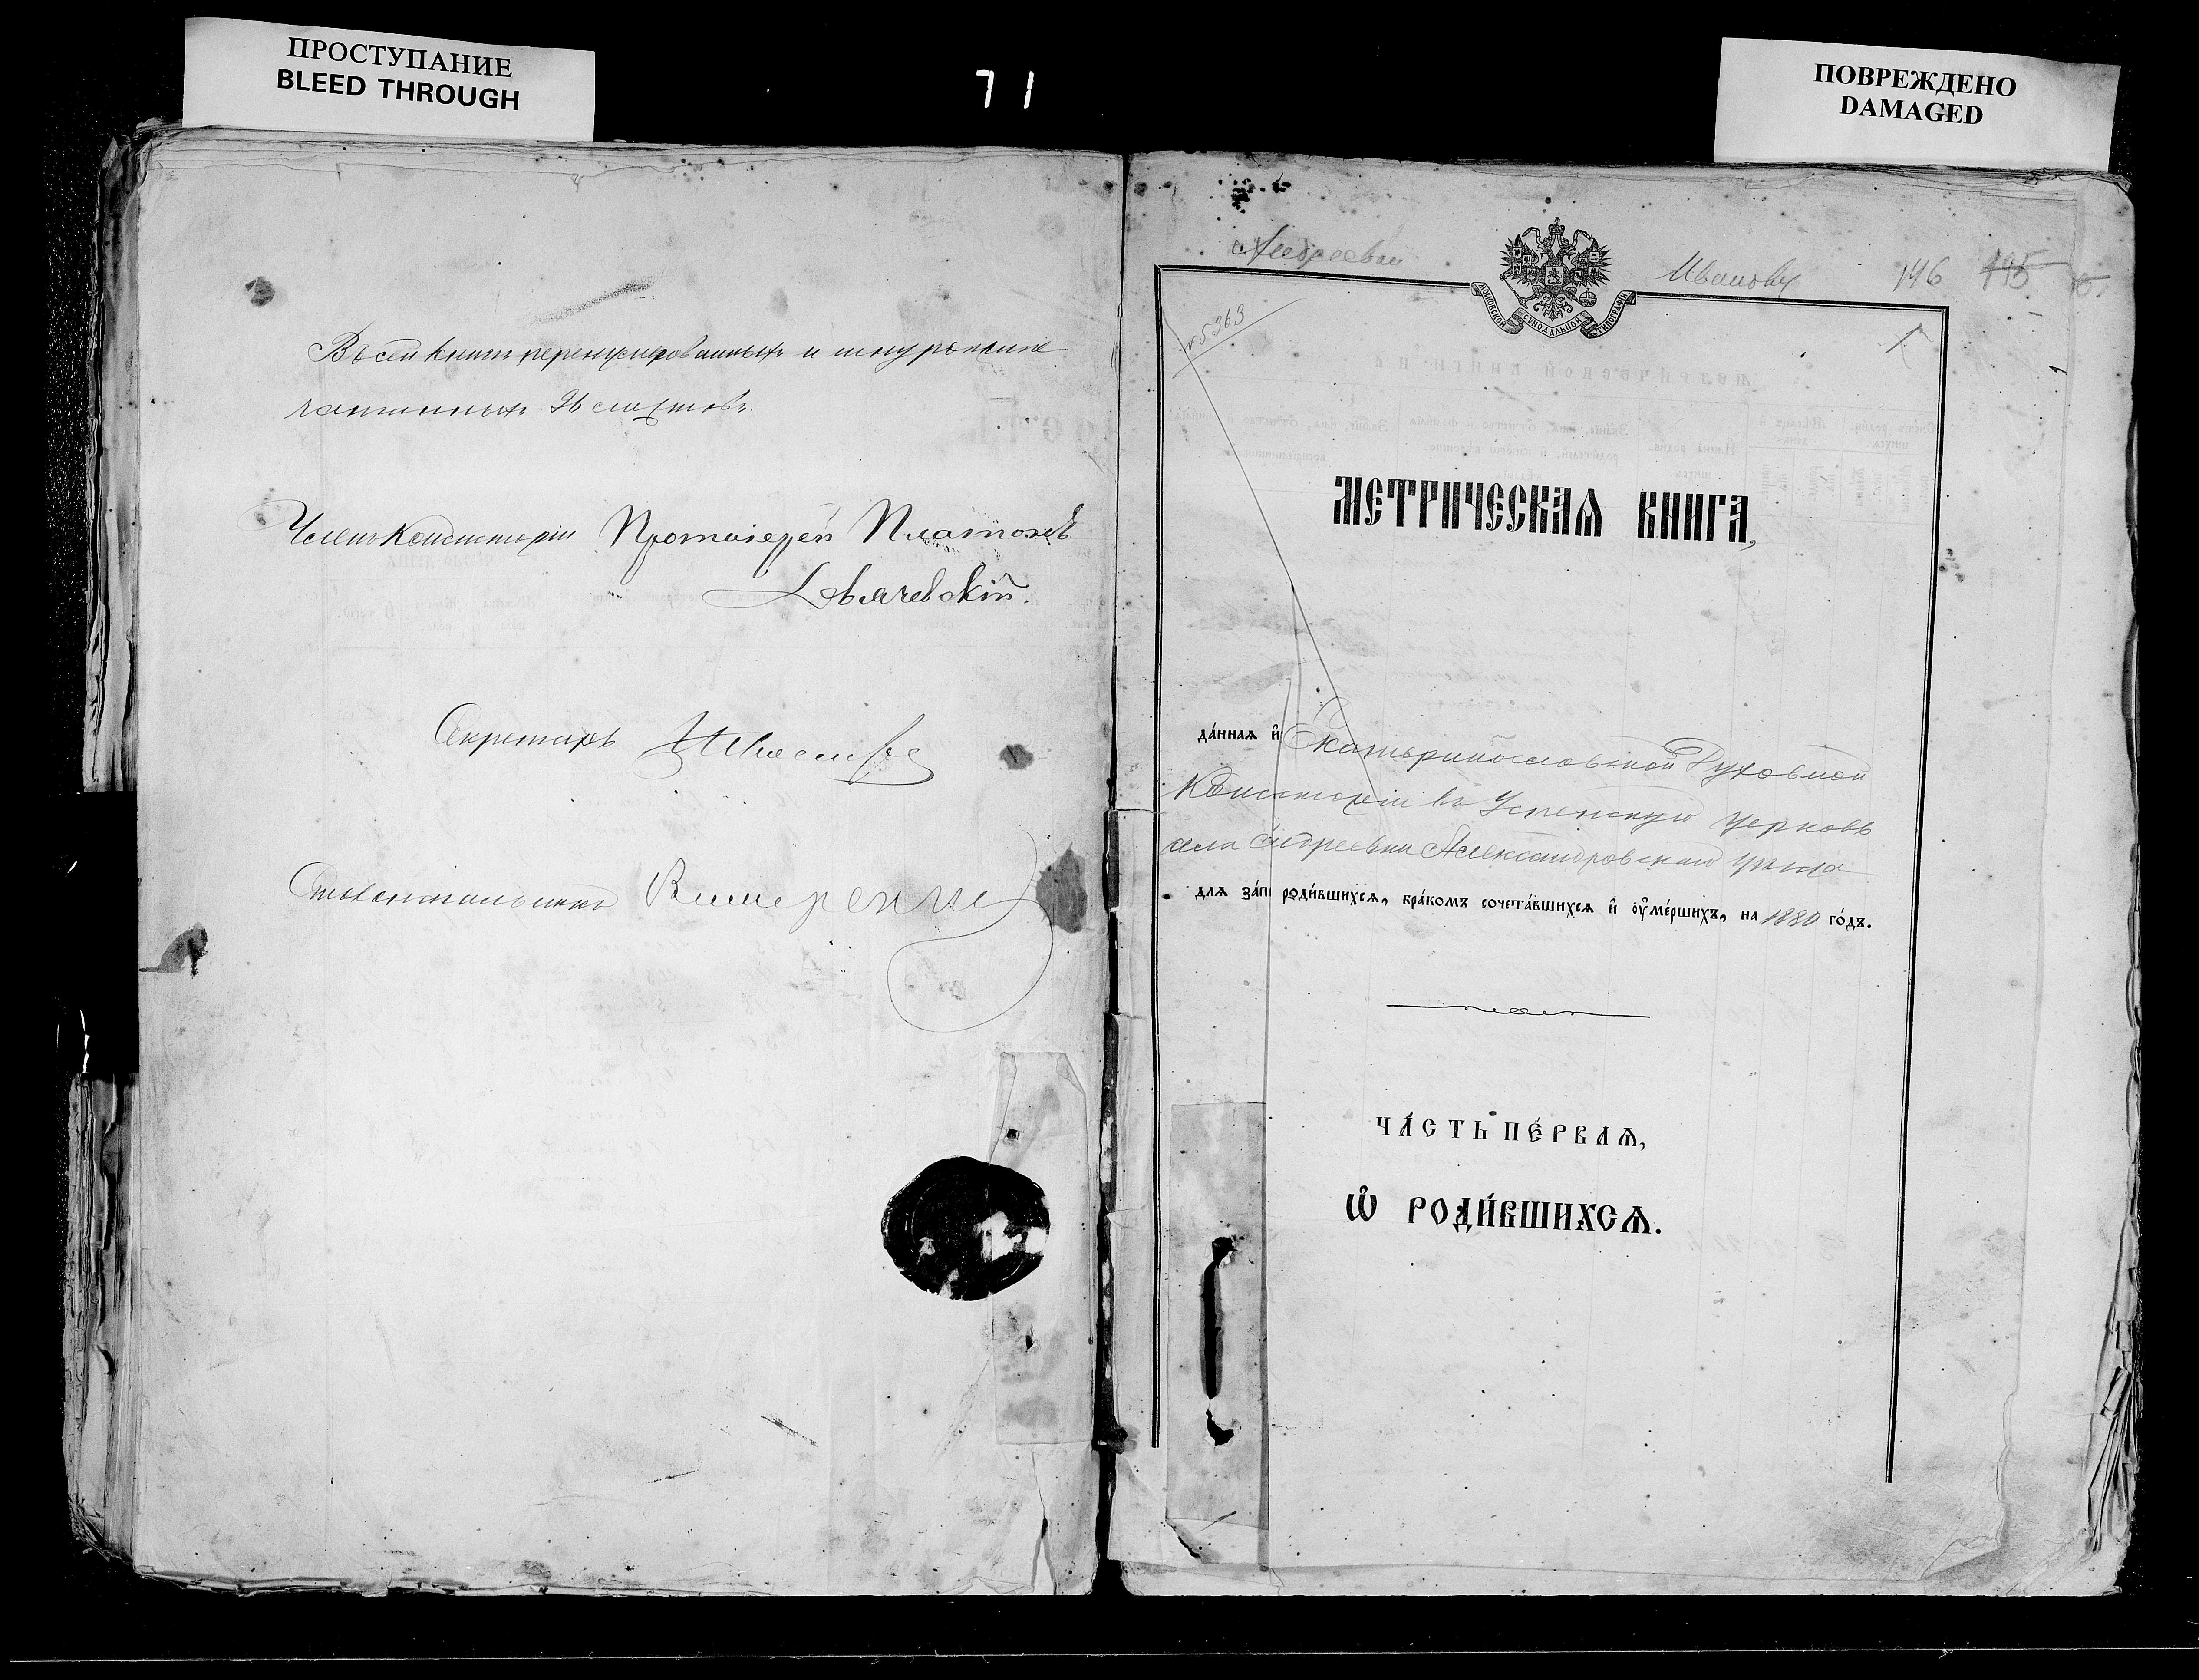 ПРОСТУПАНИЕ
BLEED THROUGH
71
ПОВРЕЖДЕНО
DAMAGED
Въ сей книгѣ перенумерованныхъ и шнуропипе
чатанныхъ листовъ.
Членъ Консисторіи Протоіерей Платонъ
Секретарь
Столоначальникъ
Андреевки
146 195
МОСКОВСКОЙ СИНОДАЛЬНОЙ ТИПОГРАФІИ
№ 5363
МЕТРИЧЕСКАЯ КНИГА,
да́нная и҆ Екатеринославской Духовной
Консисторіи въ Успенскую церковь
села Андреевки Александровскаго уѣзда
для за́п роди́вшихся, бра́комъ сочета́вшихся и҆ ᲂу҆ме́ршихъ, на 1880 го́дъ.
ЧА́СТЬ ПЕ́РВАЯ,
Ѡ҆ РОДИ́ВШИХСЯ.